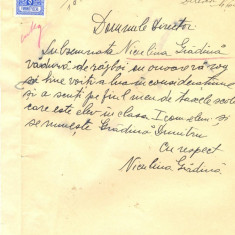 Domnule Director
Subsemnata Niculina Grădină
văduvă de război cu onoare vă rog
să bine voiți a lua în considerațiune
și a scuti pe fiul meu de taxele școlare
care este elev în clasa I com elem și
se numește Grădină Dumitru
Cu respect
Niculina Grădină